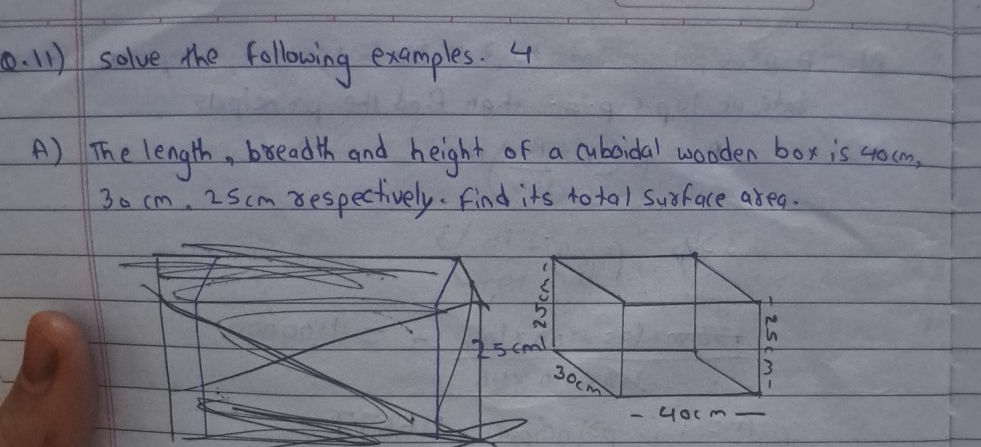 Q.11) solve the following examples. 4
A) The length, breadth and height of a cuboidal wooden box is 40cm,
30cm, 25cm respectively. Find its total surface area.
25cm
25cm
25cm
30cm
40cm